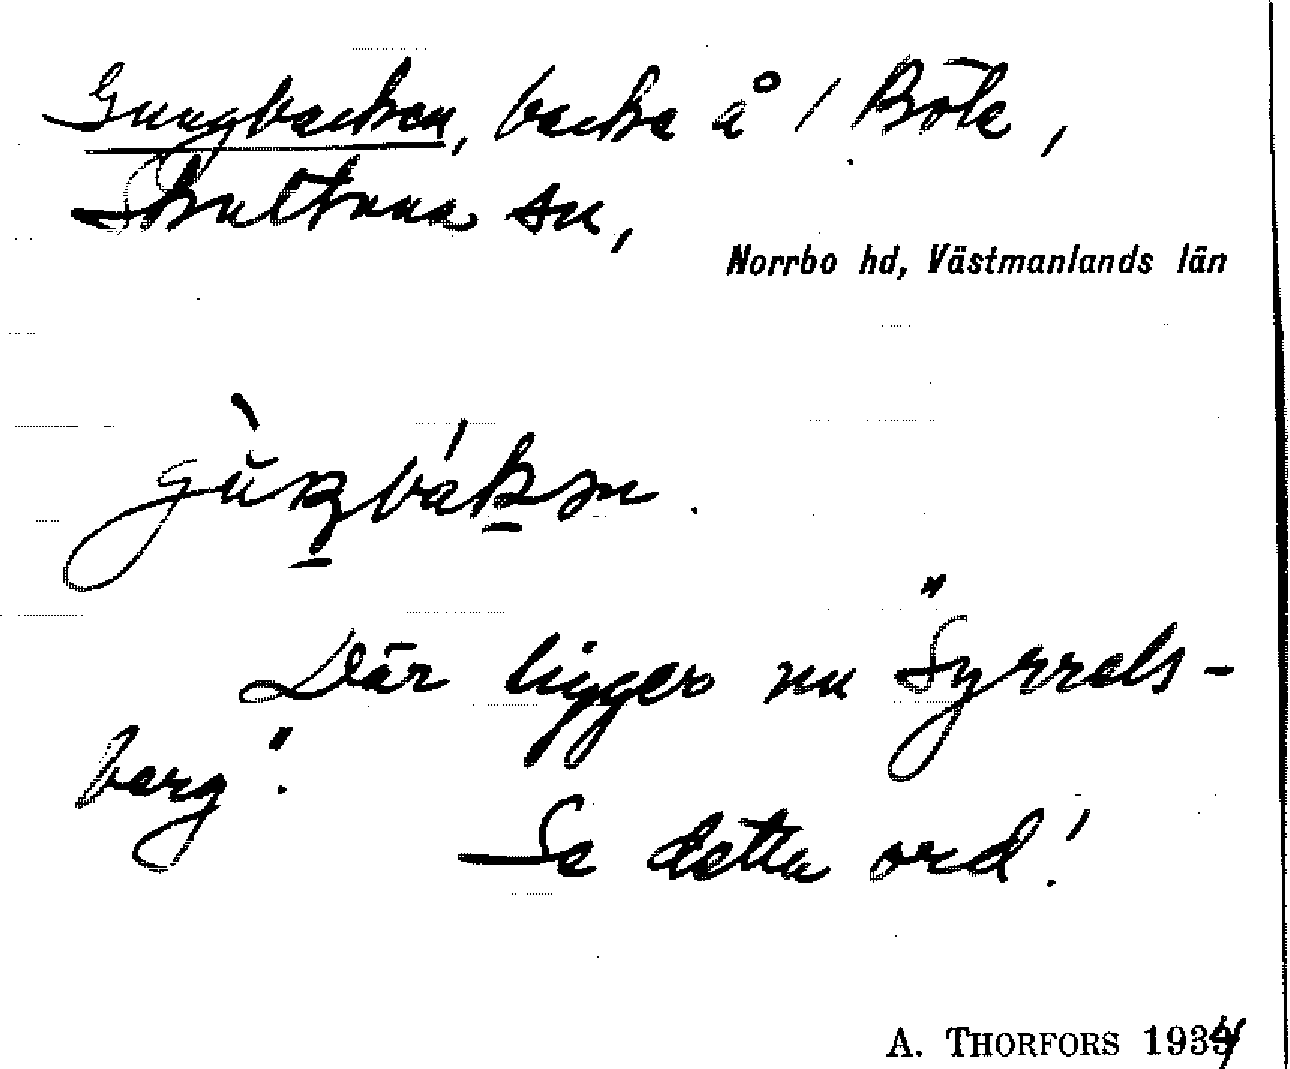 Gungbacken, backe å 1 Böle,
Skultuna sn,
Norrbo hd, Västmanlands län
Där ligger nu "Syrrels-
berg".
Se detta ord!
A. THORFORS 1934